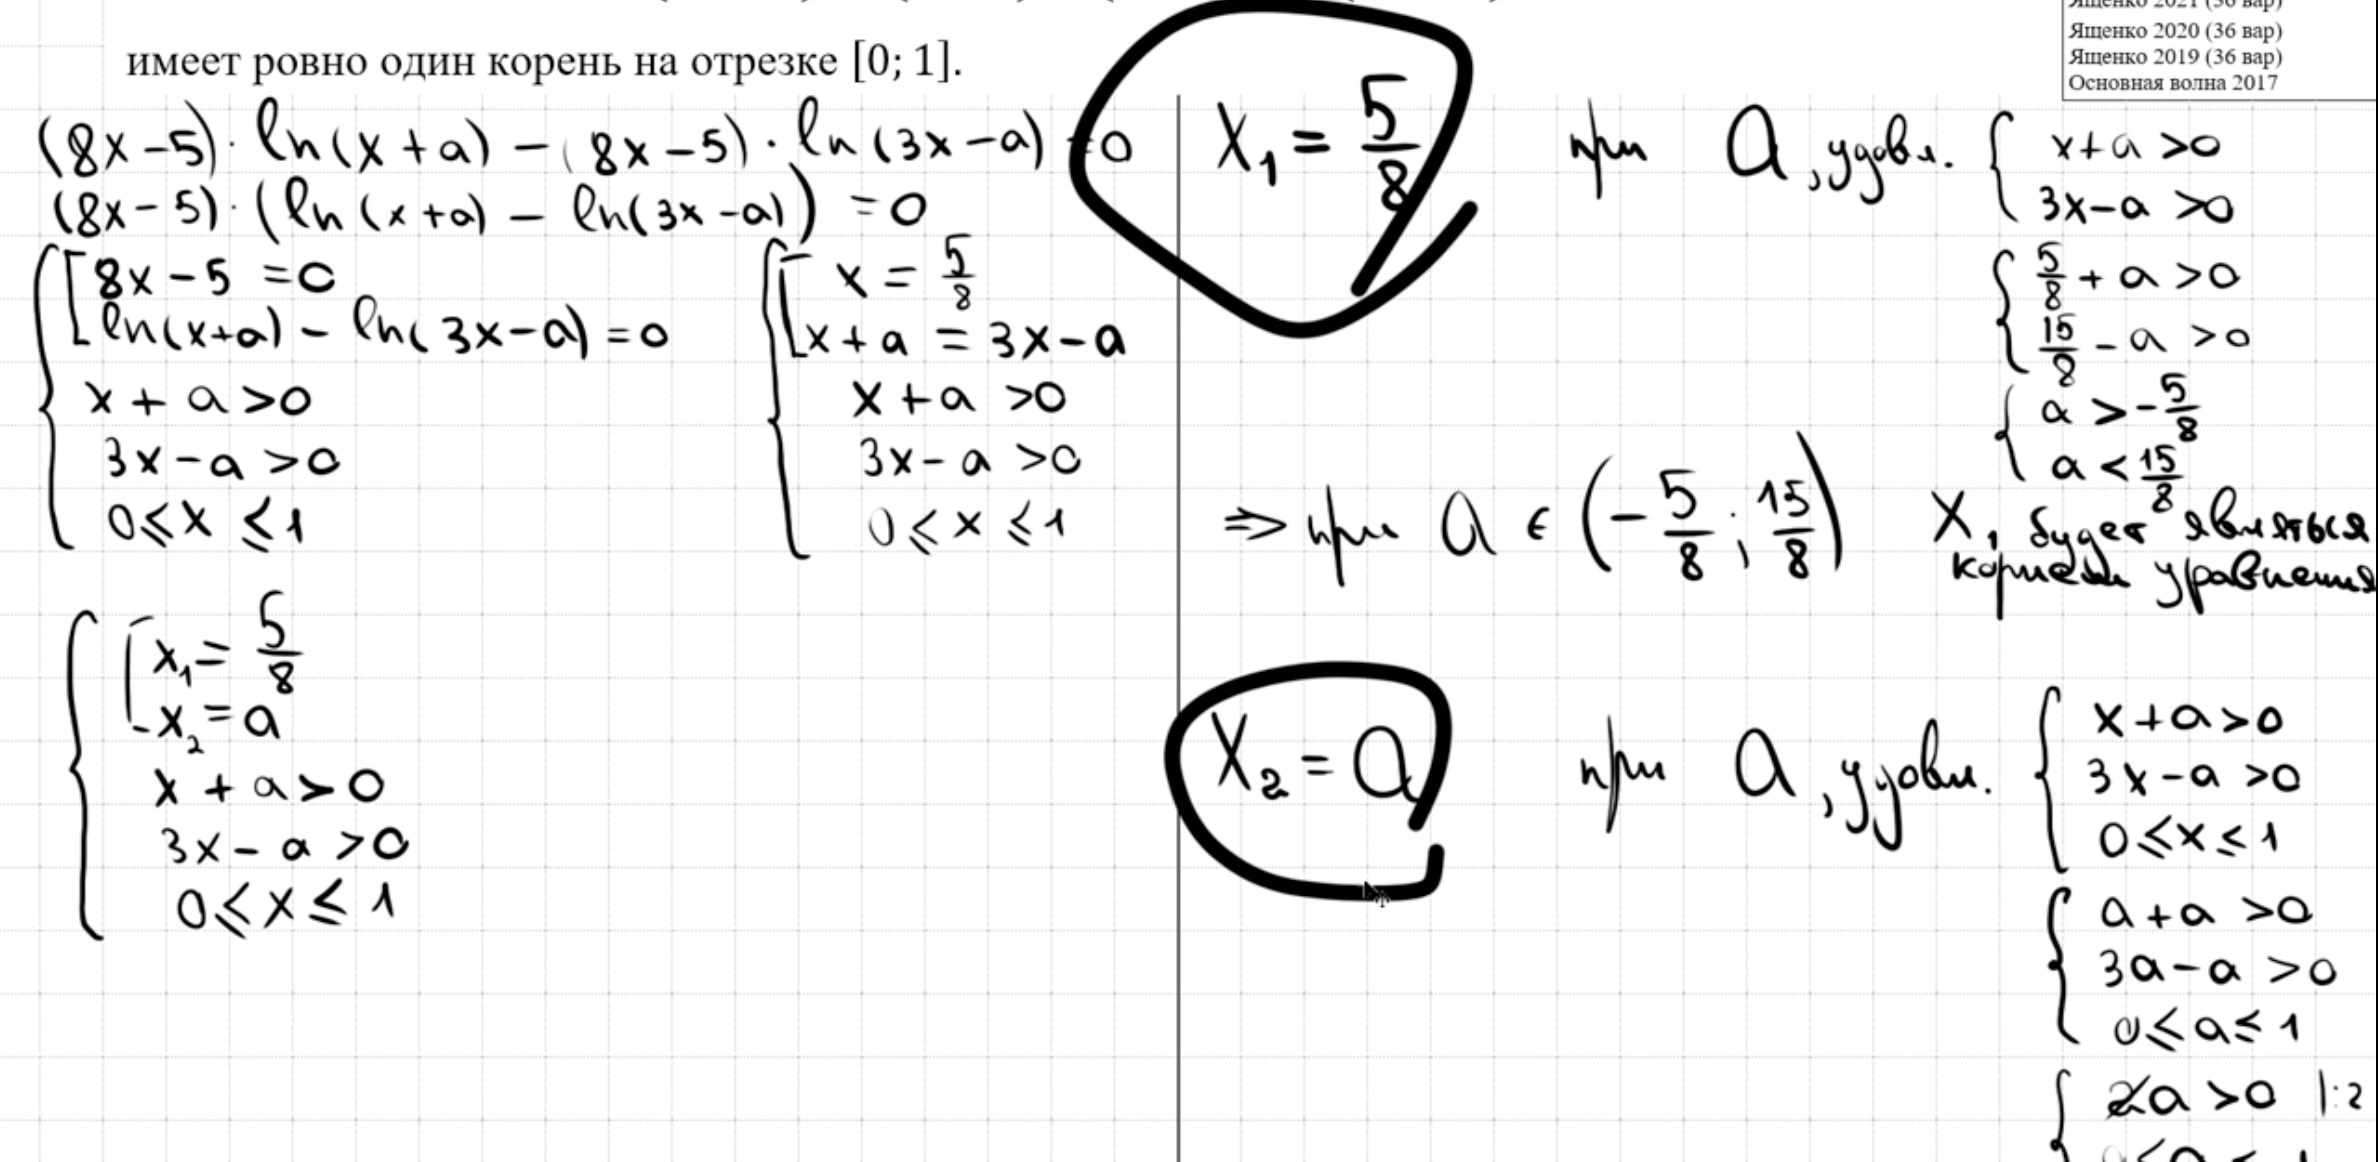 имеет ровно один корень на отрезке [0; 1].
Ященко 2021 (36 вар)
Ященко 2020 (36 вар)
Ященко 2019 (36 вар)
Основная волна 2017
(8x-5)·ln(x+a) - (8x-5)·ln(3x-a) =0
(8x-5)·(ln(x+a) - ln(3x-a)) =0
8x-5 =0
ln(x+a) - ln(3x-a) =0
x+a>0
3x-a>0
0≤x≤1
x = 5/8
x+a = 3x-a
x+a >0
3x-a >0
0≤x≤1
x₁ = 5/8
x₂ = a
x+a>0
3x-a>0
0≤x≤1
X₁ = 5/8 при a, удовл. x+a >0
3x-a >0
5/8 + a >0
15/8 - a >0
a > -5/8
a < 15/8
⇒ при a ∈ (-5/8; 15/8) X₁ будет являться
корнем уравнения
X₂ = a при a, удовл. x+a>0
3x-a >0
0≤x≤1
a+a >0
3a-a >0
0≤a≤1
2a>0 |:2